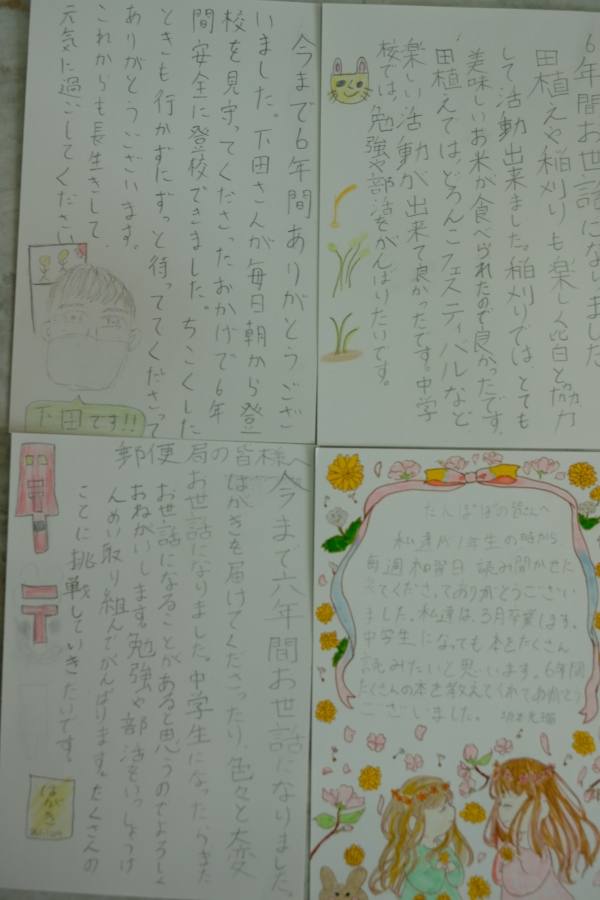 6年間お世話になりました
田植えや稲刈りも楽しく皆と協力
して活動出来ました。稲刈りではとても
美味しいお米が食べられたので良かったです。
田植えでは、どろんこフェスティバルなど
楽しい活動が出来て良かったです。中学
校では、勉強や部活をがんばりたいです。
今まで6年間ありがとうござ
いました。下田さんが毎日朝から登
校を見守ってくださったおかげで6年
間安全に登校できました。ちこくした
ときも行かずにずっと待っててくださって
ありがとうございます。
これからも長生きして
元気に過ごしてください
下田です!!
郵便局の皆様へ
今まで六年間お世話になりました。
はがきを届けてくださったり、色々と大変
お世話になりました。中学生になったらまた
お世話になることがあると思うのでよろしく
おねがいします。勉強や部活をいっしょうけ
んめい取り組んでがんばります。たくさんの
ことに挑戦していきたいです。
はがき
たんぽぽの皆さんへ
私達が1年生の時から
毎週 読み聞かせた
くださってありがとうござい
ました。私達は、3月卒業します。
中学生になっても本をたくさん
読みたいと思います。6年間
たくさんの本を教えてくれてありがとう
ございました。